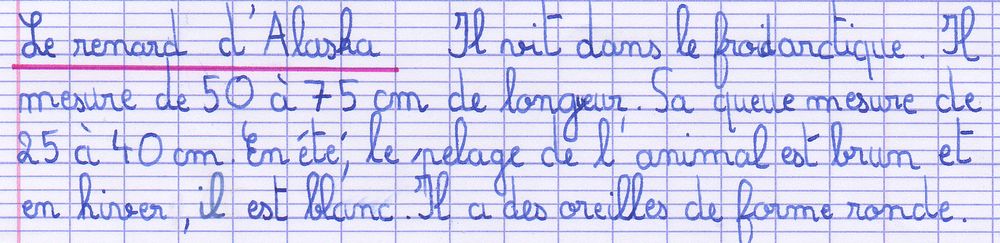 Le renard d'Alaska Il vit dans le froid arctique. Il
mesure de 50 à 75 cm de longueur. Sa queue mesure de
25 à 40 cm. En été, le pelage de l'animal est brun et
en hiver, il est blanc. Il a des oreilles de forme ronde.